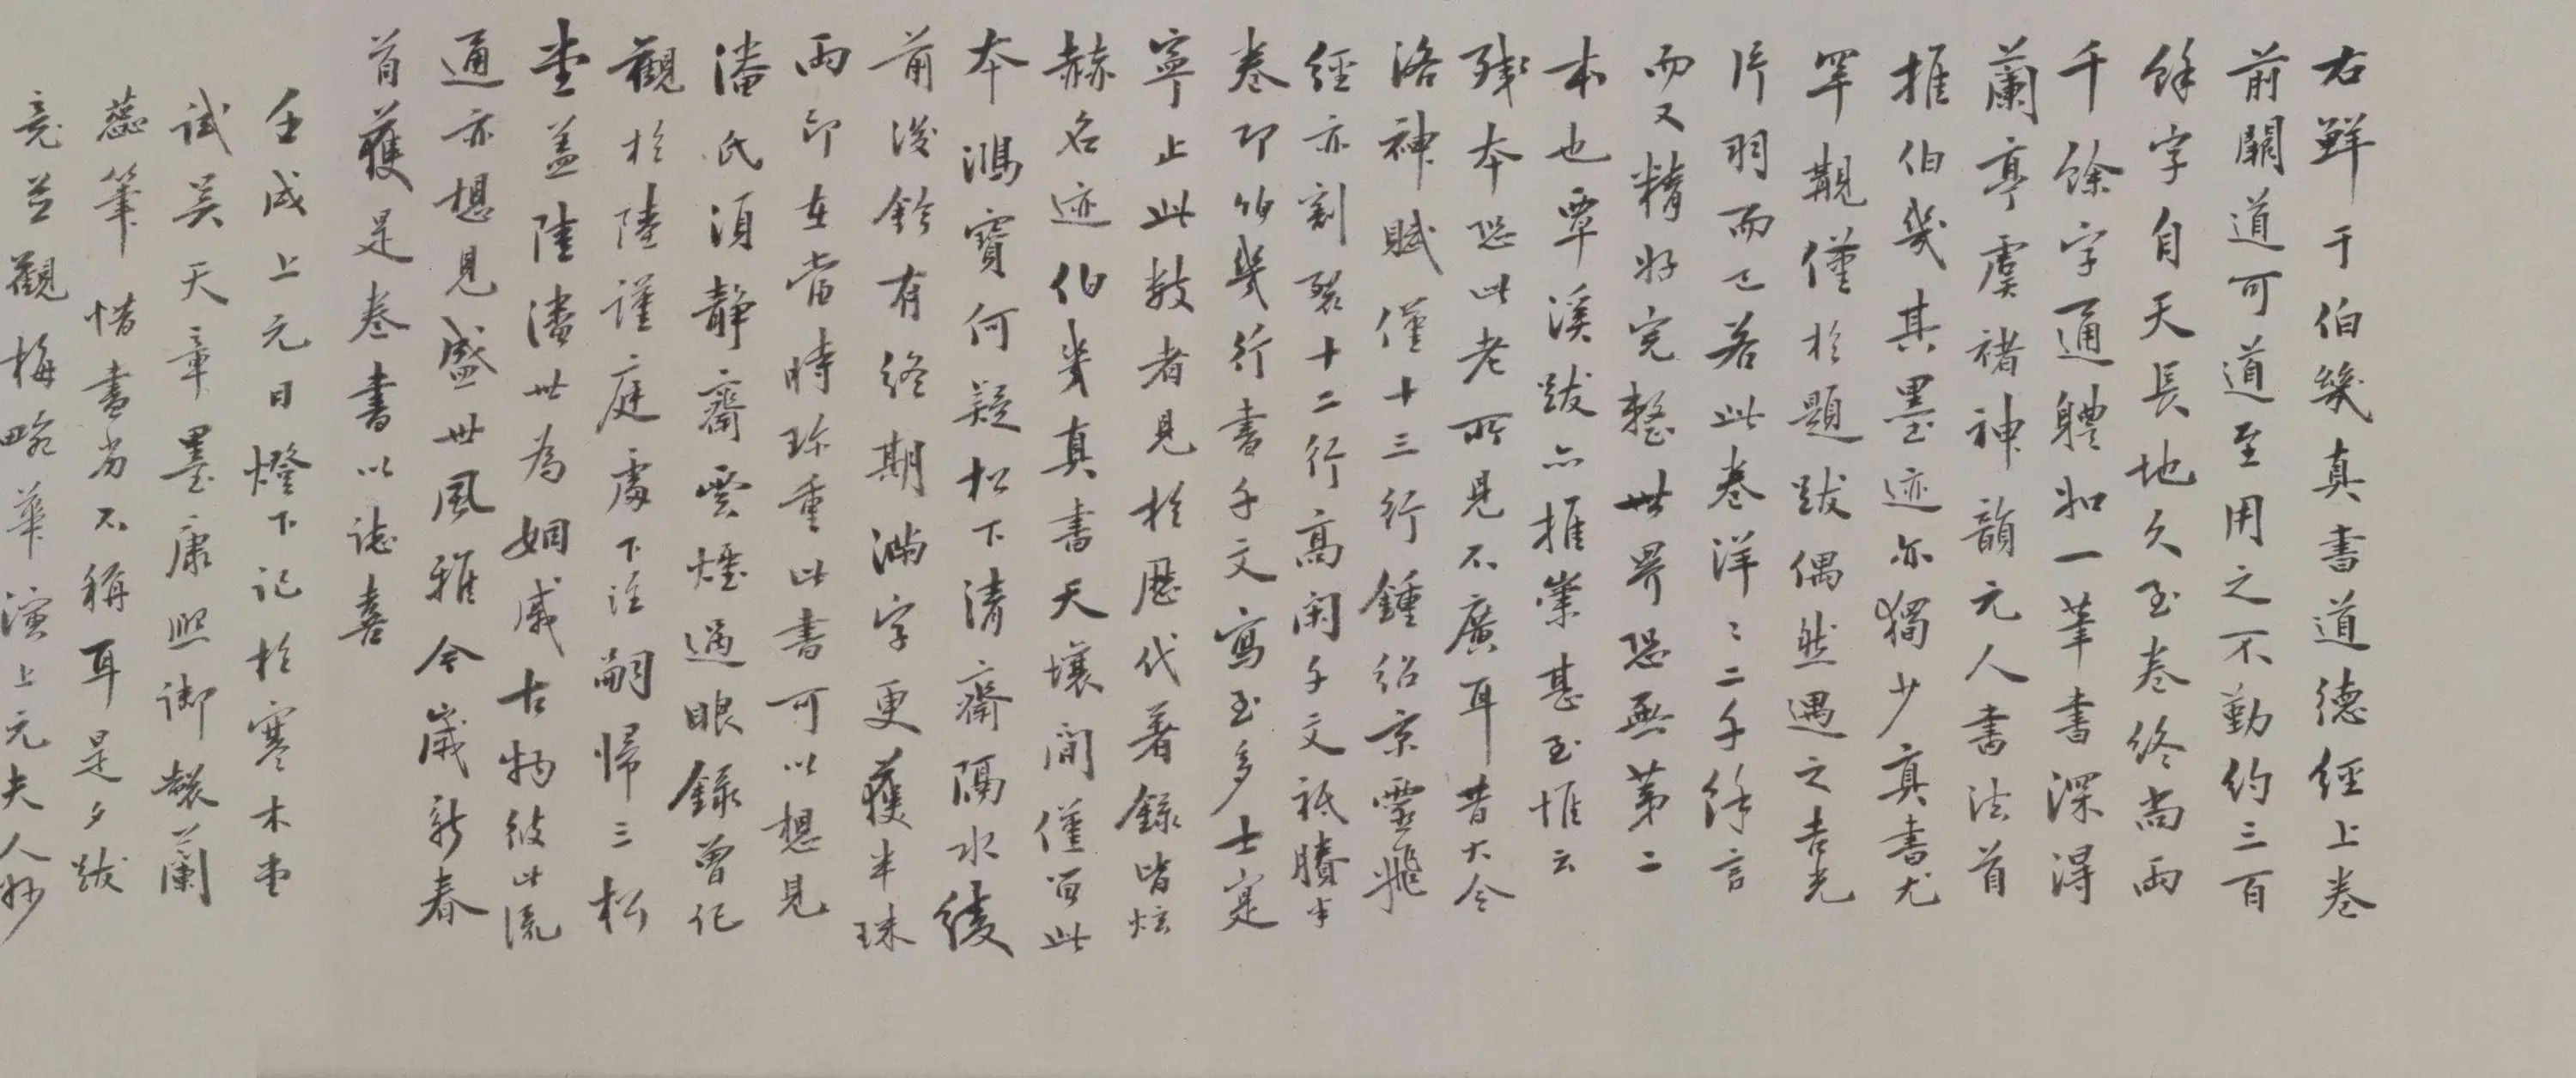 右鮮于伯幾真書道德經上卷
前闕道可道至用之不勤約三百
餘字自天長地久至卷終尚兩
千餘字通體如一筆書深得
蘭亭虞褚神韻元人書法首
推伯幾其墨迹亦獨少真書尤
罕覯僅於題跋偶然遇之吉光
片羽而已若此卷洋〻二千餘言
而又精好完整世界恐無第二
本也覃溪跋亦推崇甚至惟云
殘本恐此老所見不廣耳昔大令
洛神賦僅十三行鍾紹京靈飛
經亦割裂十二行高閑千文祇賸半
卷即伯幾行書千文寫至多士寔
寧止此數者見於歷代著錄皆炫
赫名迹伯幾真書天壤間僅留此
本鴻寶何疑松下清齋隔水綾
前後鈐有終期滿字更獲半珠
兩印在當時珍重此書可以想見
潘氏須靜齋雲煙過眼錄曾記
觀於陸謹庭處下注嗣歸三松
堂蓋陸潘世為姻戚古物彼此流
通亦想見盛世風雅今歲新春
首獲是卷書以誌喜
壬戌上元日燈下記於寒木堂
試吳天章墨康熙御製蘭
蕊筆惜書劣不稱耳是夕跋
竟並觀梅畹華演上元夫人妙